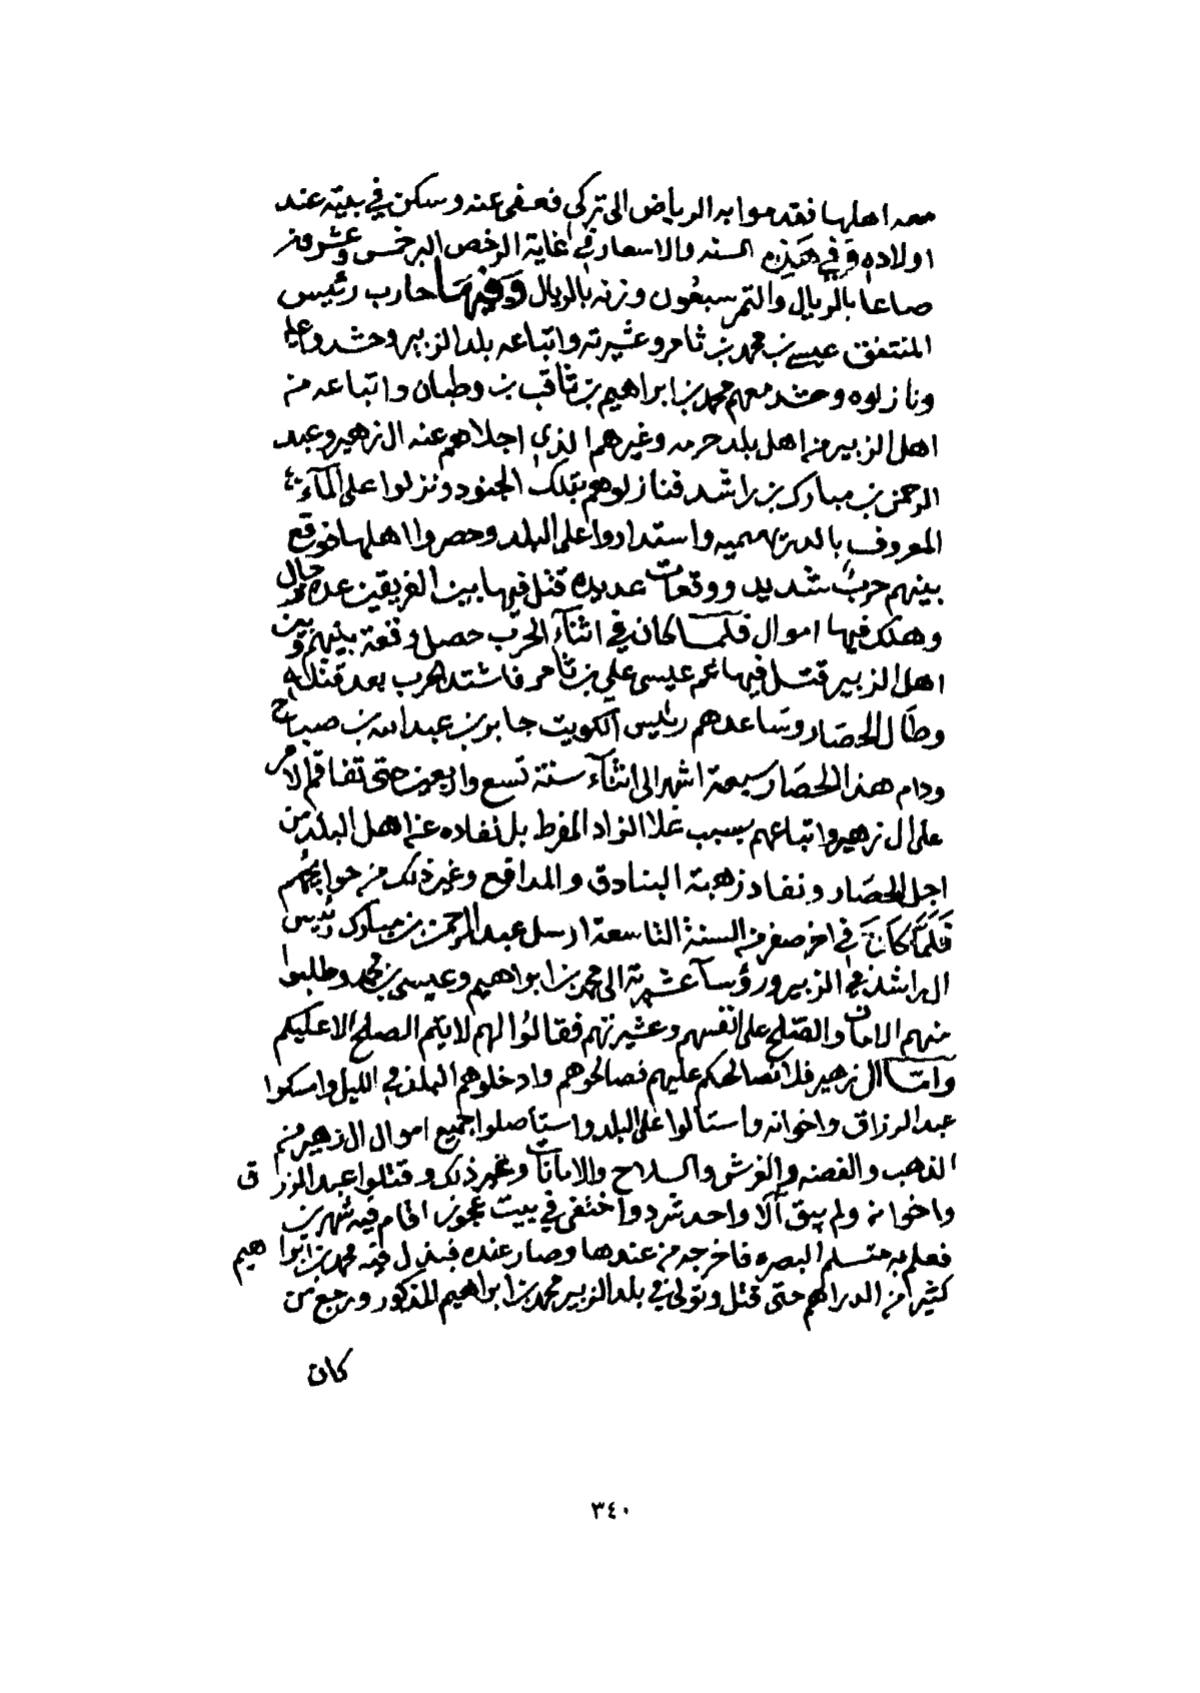 معه اهلها فقدموا به الرياض الى تركي فعفى عنه وسكن في بيته عند
اولاده وفي هذه السنه والاسعار في غاية الرخص البر خمس وعشرون
صاعا بالريال والتمر سبعون وزنه بالريال وفيها حارب رئيس
المنتفق عيسى بن محمد بن ثامر وعشيرته واتباعه بلد الزبير وحشدوا عليه
ونازلوه وحشد معهم محمد بن ابراهيم بن ثاقب بن وطبان واتباعه من
اهل الزبير من اهل بلد حرمه وغيرهم الذي اجلاهم عنه ال زهير وعبد
الرحمن بن مبارك بن راشد فنازلوهم بتلك الجنود ونزلوا على المآء
المعروف بالدريهميه واستداروا على البلد وحصروا اهلها فوقع
بينهم حربٌ شديد ووقعات عديده قتل فيها بين الفريقين عدة رجال
وهلك فيها اموال فلما كان في اثنآء الحرب حصل وقعة بينهم وبين
اهل الزبير قتل فيها عم عيسى علي بن ثامر فاشتد الحرب بعد قتله
وطال الحصار وساعدهم رئيس الكويت جابر بن عبدالله بن صباح
ودام هذا الحصار سبعة اشهر الى اثنآء سنة تسع واربعين حتى تفاقم الامر
على ال زهير واتباعهم بسبب غلا الزاد المفرط بل نفاده عن اهل البلد من
اجل الحصار ونفاد زهبة البنادق والمدافع وغير ذلك من حوايجهم
فلما كان في اخر صفر من السنة التاسعة ارسل عبدالرحمن بن مبارك رئيس
ال راشد في الزبير ورؤسآء عشيرته الى محمد بن ابراهيم وعيسى بن محمد وطلبوا
منهم الامان والصلح على انفسهم وعشيرتهم فقالوا لهم لا يتم الصلح الا عليكم
وامّا ال زهير فلا نصالحكم عليهم فصالحوهم وادخلوهم البلد في الليل وامسكوا
عبدالرزاق واخوانه واستالوا على البلد واستأصلوا جميع اموال ال زهير من
الذهب والفضه والفرش والسلاح والامانات وغير ذلك وقتلوا عبدالرزاق
واخوانه ولم يبق الا واحد شرد واختفى في بيت عجوز اقام فيه شهرين
فعلم به متسلم البصره فاخرجه من عندها وصار عنده فبذل فيه محمد بن ابراهيم
كثيراً من الدراهم حتى قتل وتولى في بلد الزبير محمد بن ابراهيم المذكور ورجع من
كان
٣٤٠